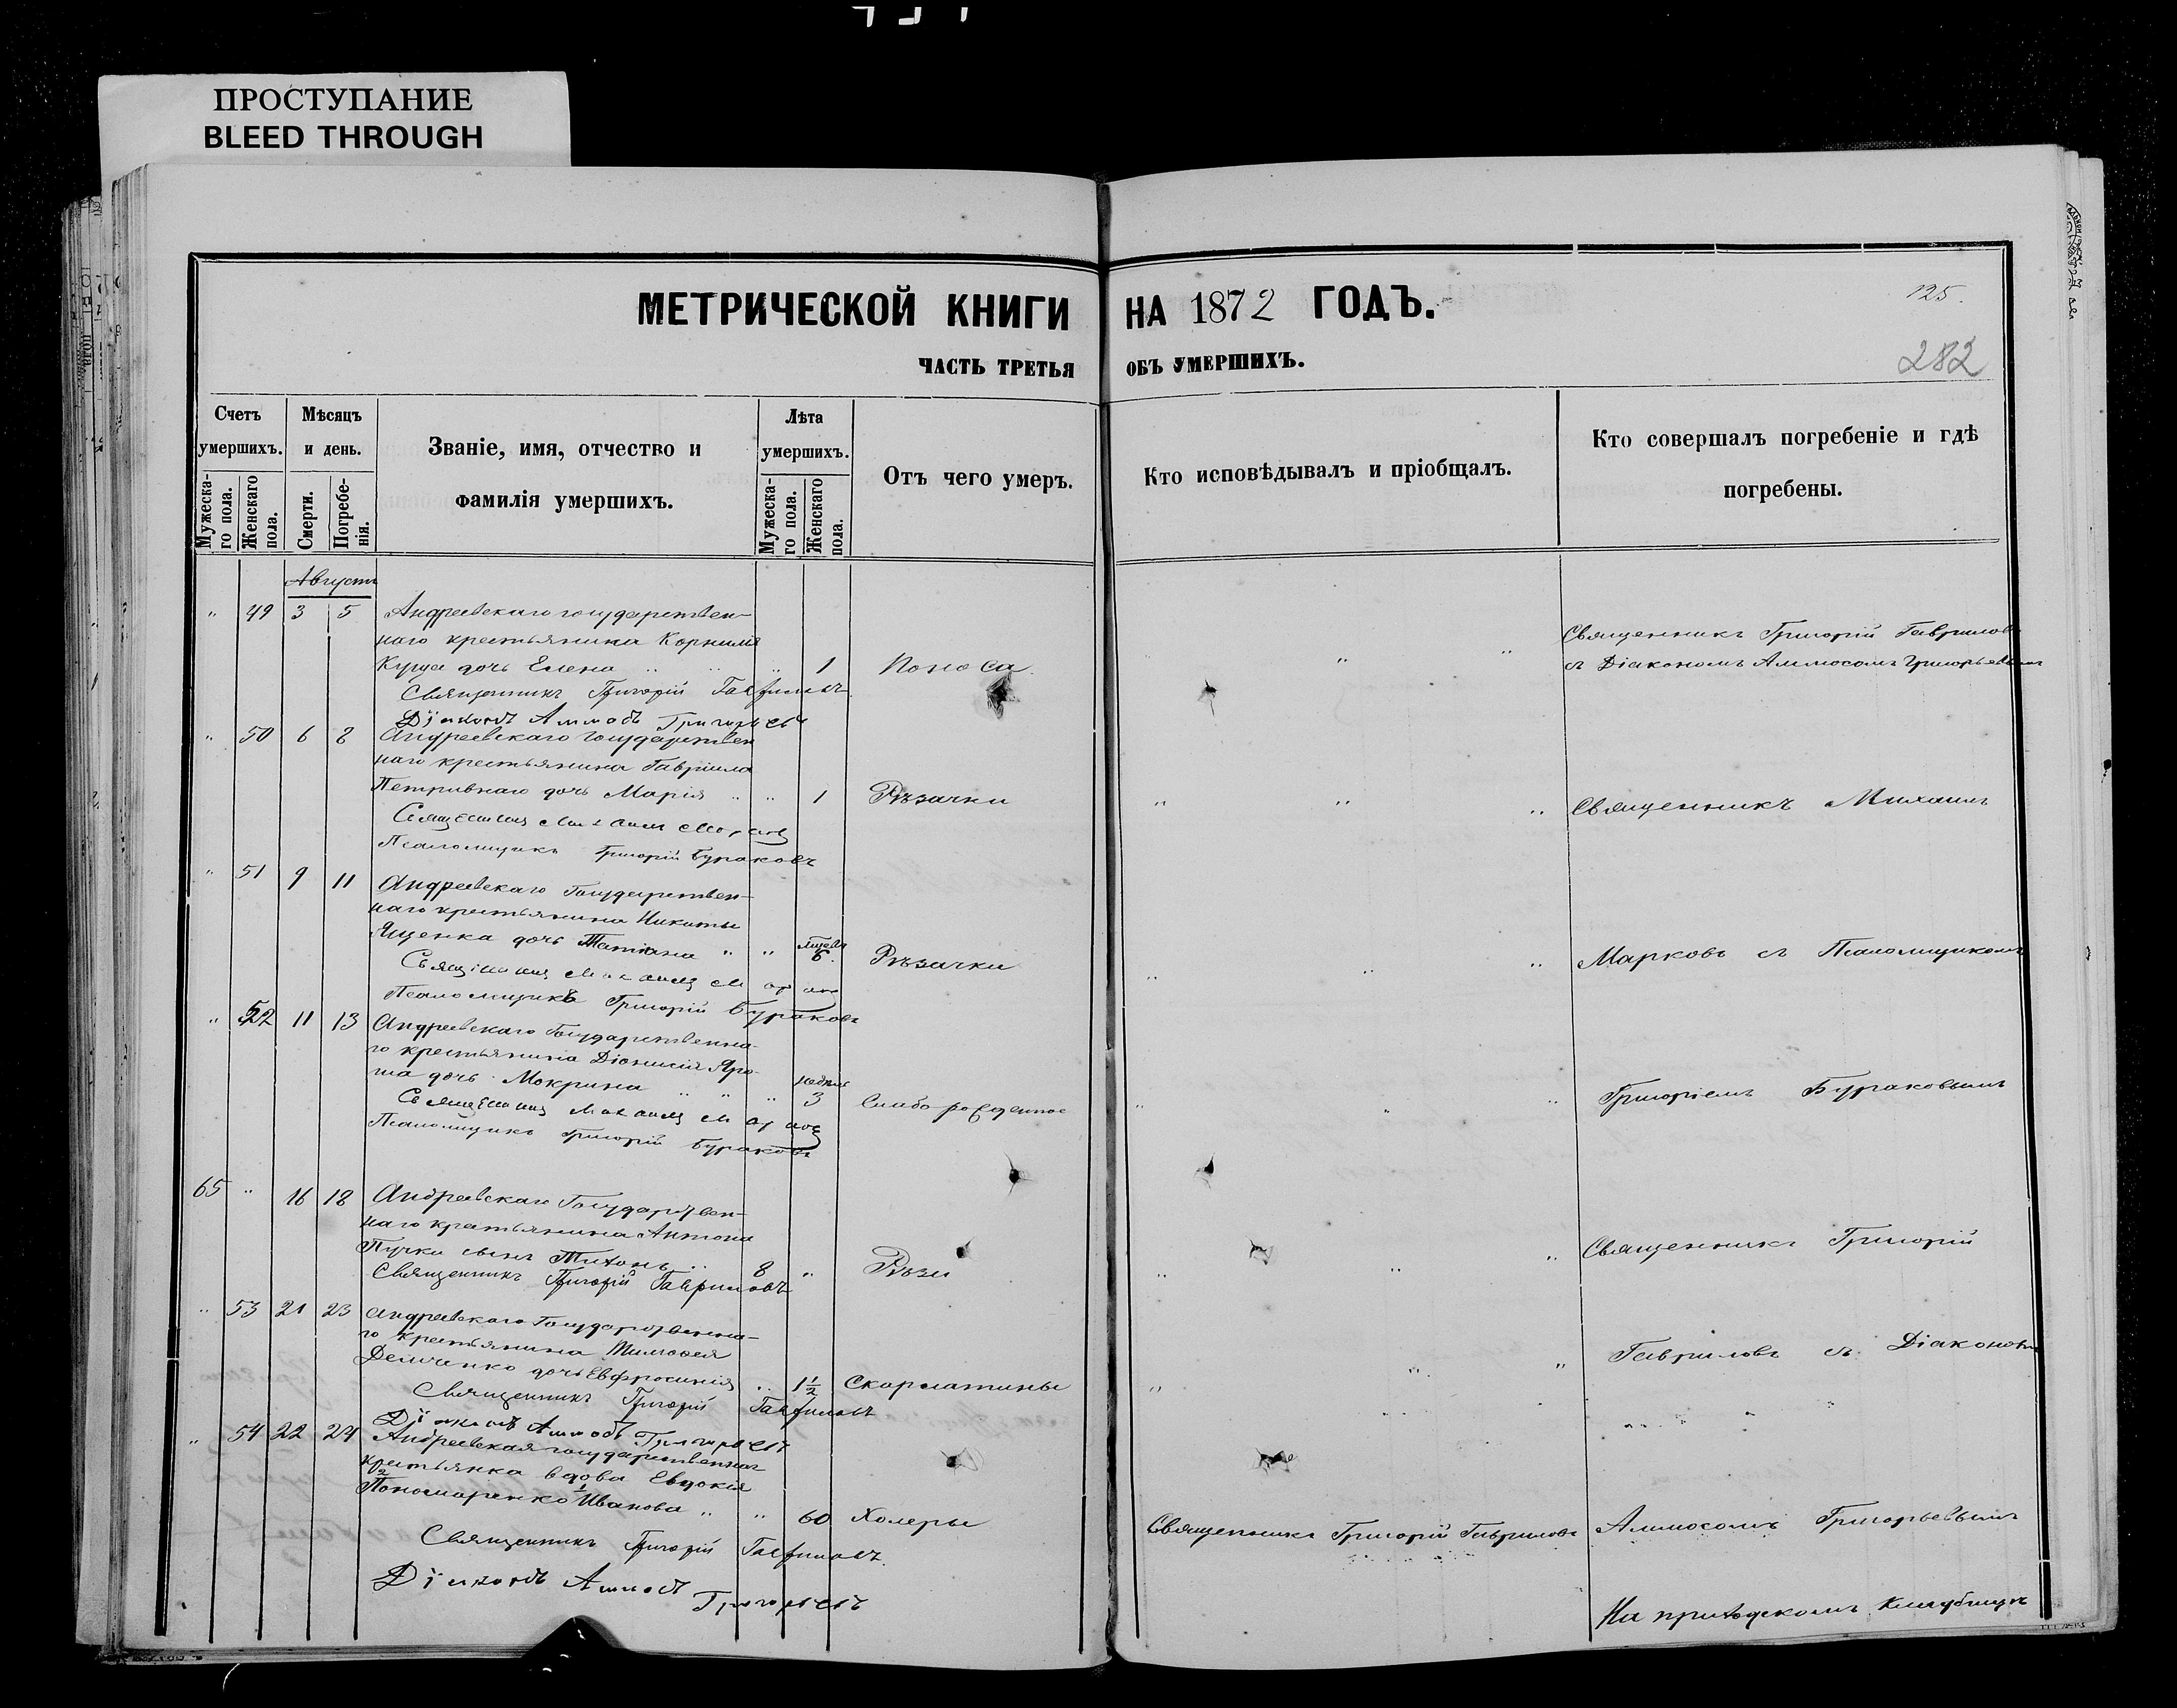 ПРОСТУПАНИЕ
BLEED THROUGH
МЕТРИЧЕСКОЙ КНИГИ НА 1872 ГОДЪ.
125.
ЧАСТЬ ТРЕТЬЯ ОБЪ УМЕРШИХЪ.
282
Счетъ умершихъ.
Мужеска-го пола.
Женскаго пола.
Мѣсяцъ и день.
Смерти.
Погребе-нія.
Званіе, имя, отчество и фамилія умершихъ.
Лѣта умершихъ.
Мужеска-го пола.
Женскаго пола.
Отъ чего умеръ.
Кто исповѣдывалъ и пріобщалъ.
Кто совершалъ погребеніе и гдѣ погребены.
Августъ
" 49 3 5 Андреевскаго государствен-
наго крестьянина Корнилія
Священникъ Григорій Гавриловъ
дочь Елена " " " 1 Поноса " "
съ Діакономъ Аммосомъ Григорьевымъ
Священникъ Григорій Гавриловъ
Діаконъ Аммосъ Григорьевъ
" 50 6 8 Андреевскаго государствен
наго крестьянина Гавріила
Петривнаго дочь Марія " " 1 Рѣзачки " " " Священникъ Михаилъ
Священникъ Михаилъ Марковъ
Псаломщикъ Григорій Бураковъ
" 51 9 11 Андреевскаго Государствен-
наго крестьянина Никиты
Ященка дочь Татіана " " 6 Рѣзачки " " " Марковъ съ Псаломщикомъ
Священникъ Михаилъ Марковъ
Псаломщикъ Григорій Бураковъ
" 52 11 13 Андреевскаго Государственна-
го крестьянина Діонисія Яро-
ша дочь Мокрина " " " недѣль 3 Слабо рожденное " " " Григоріемъ Бураковымъ
Священникъ Михаилъ Марковъ
Псаломщикъ Григорій Бураковъ
65 " 16 18 Андреевскаго Государствен-
наго крестьянина Антона
Пучки сынъ Тихонъ " 8 " Рѣзи " " " Священникъ Григорій
Священникъ Григорій Гавриловъ
" 53 21 23 Андреевскаго Государственна-
го крестьянина Тимофея
Демченко дочь Евфросинія " 1 1/2 Скарлатины " " " Гавриловъ съ Діакономъ
Священникъ Григорій Гавриловъ
Діаконъ Аммосъ Григорьевъ
" 54 22 24 Андреевская государственная
крестьянка вдова Евдокія
2 1
Пономаренко Иванова " " 60 Холеры Священникъ Григорій Гавриловъ Аммосомъ Григорьевымъ
Священникъ Григорій Гавриловъ.
Діаконъ Аммосъ Григорьевъ
На приходскомъ кладбищѣ